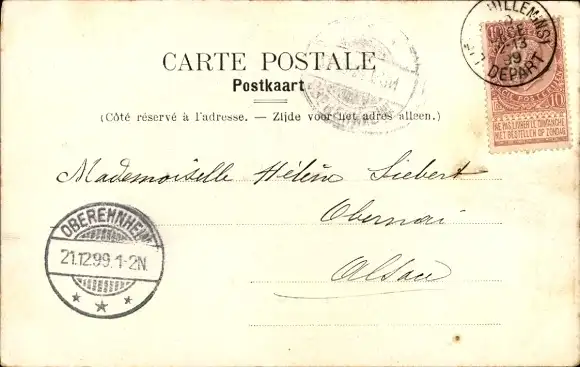 CARTE POSTALE
Postkaart
(Côté réservé à l'adresse. — Zijde voor het adres alleen.)
DEPART
99
10
NE PAS LIVRER LE DIMANCHE
NIET BESTELLEN OP ZONDAG
Mademoiselle Hélène Siebert
Obernai
Alsace
OBEREHNHEIM
21.12.99.1-2N.